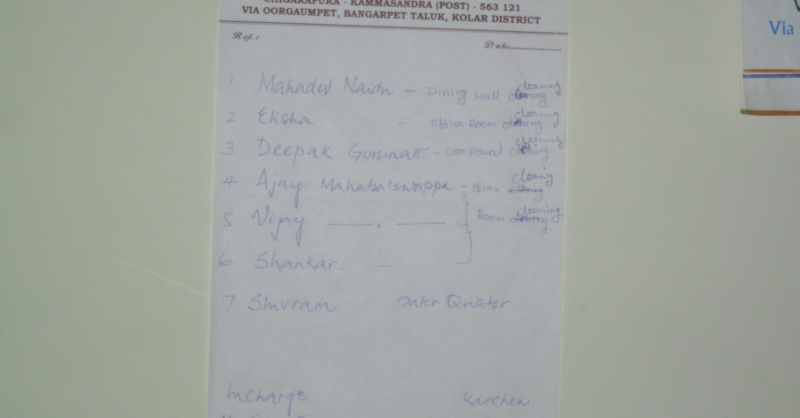 CHIGARAPURA - KAMMASANDRA (POST) - 563 121
VIA OORGAUMPET, BANGARPET TALUK, KOLAR DISTRICT
Ref.:
Date
1 Mahadev Naidu - Dining Hall cleaning
2 Elisha - Office Room cleaning
3 Deepak Gurunatt - Compound
4 Ajay Mahabalswappa - Sink
5 Vijay Room cleaning
6 Shankar. -
7 Shivram Outer Quater
Incharge Kitchen
Via